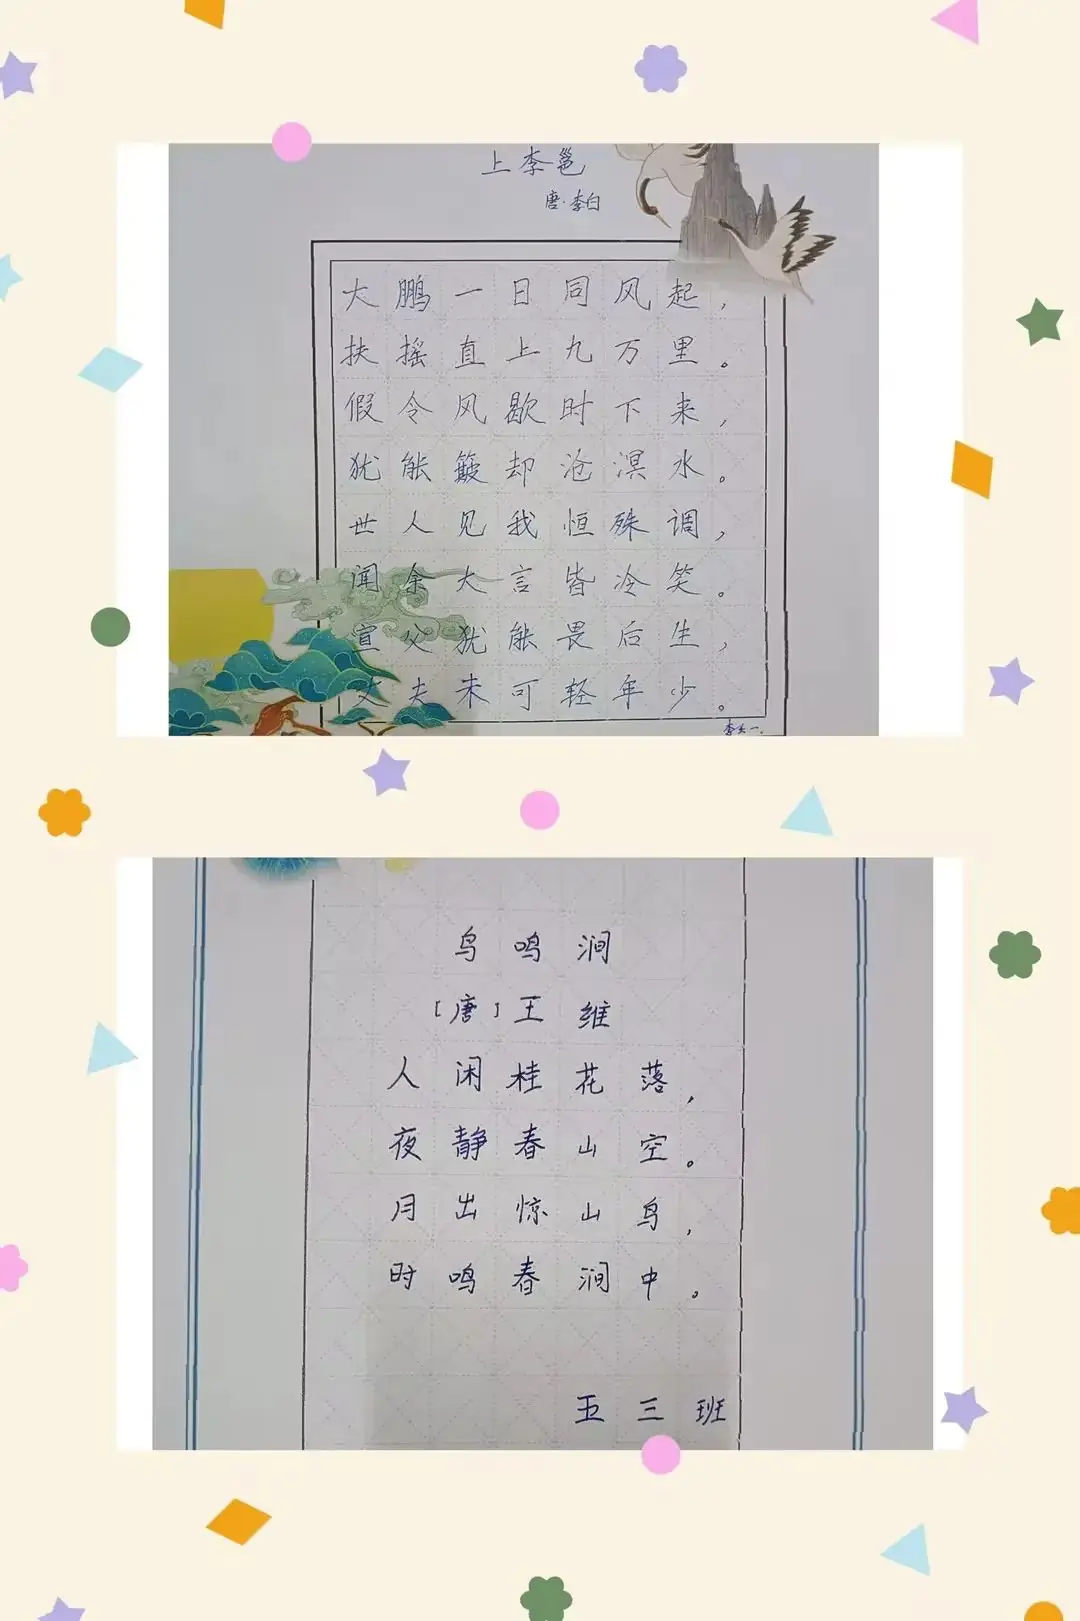 上李邕
唐·李白
大鹏一日同风起，
扶摇直上九万里。
假令风歇时下来，
犹能簸却沧溟水。
世人见我恒殊调，
闻余大言皆冷笑。
宣父犹能畏后生，
丈夫未可轻年少。
鸟鸣涧
［唐］王维
人闲桂花落，
夜静春山空。
月出惊山鸟，
时鸣春涧中。
五三班